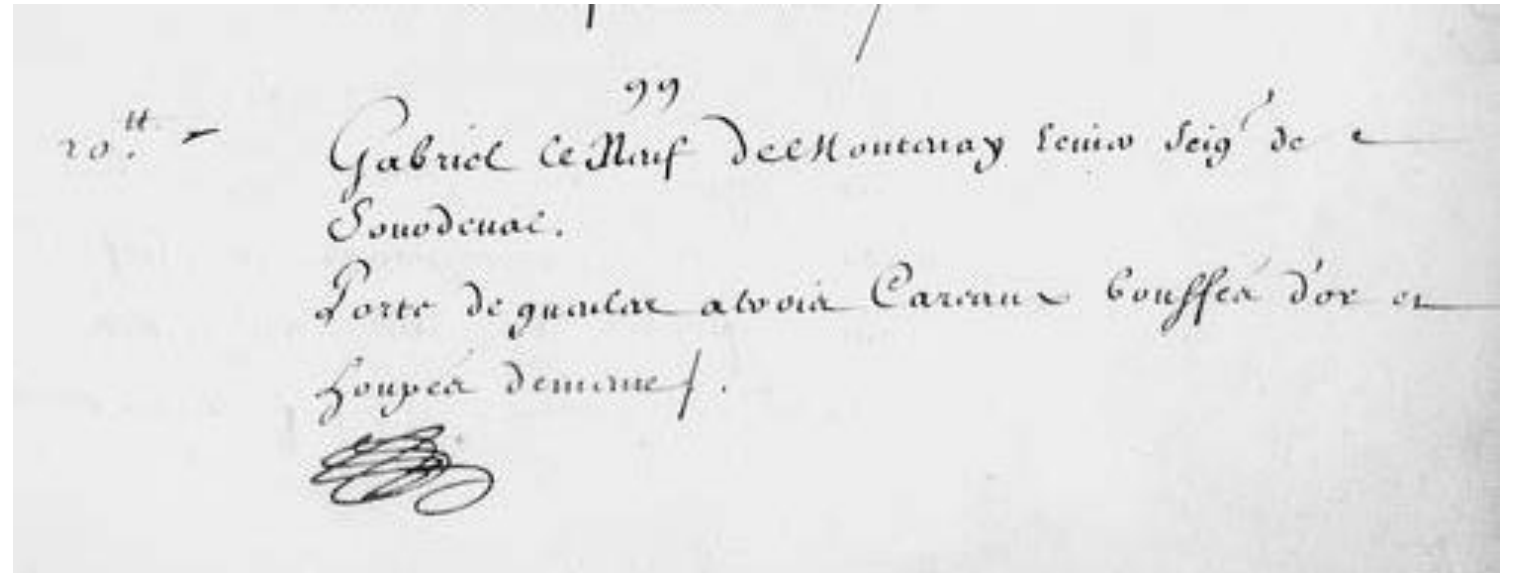 99
20.tt - Gabriel le Neuf de Montenay Ecuier Seigr de
Sourdeval.
Porte de gueulles a trois Careaux bouffés d'or et
houpés de mesme.